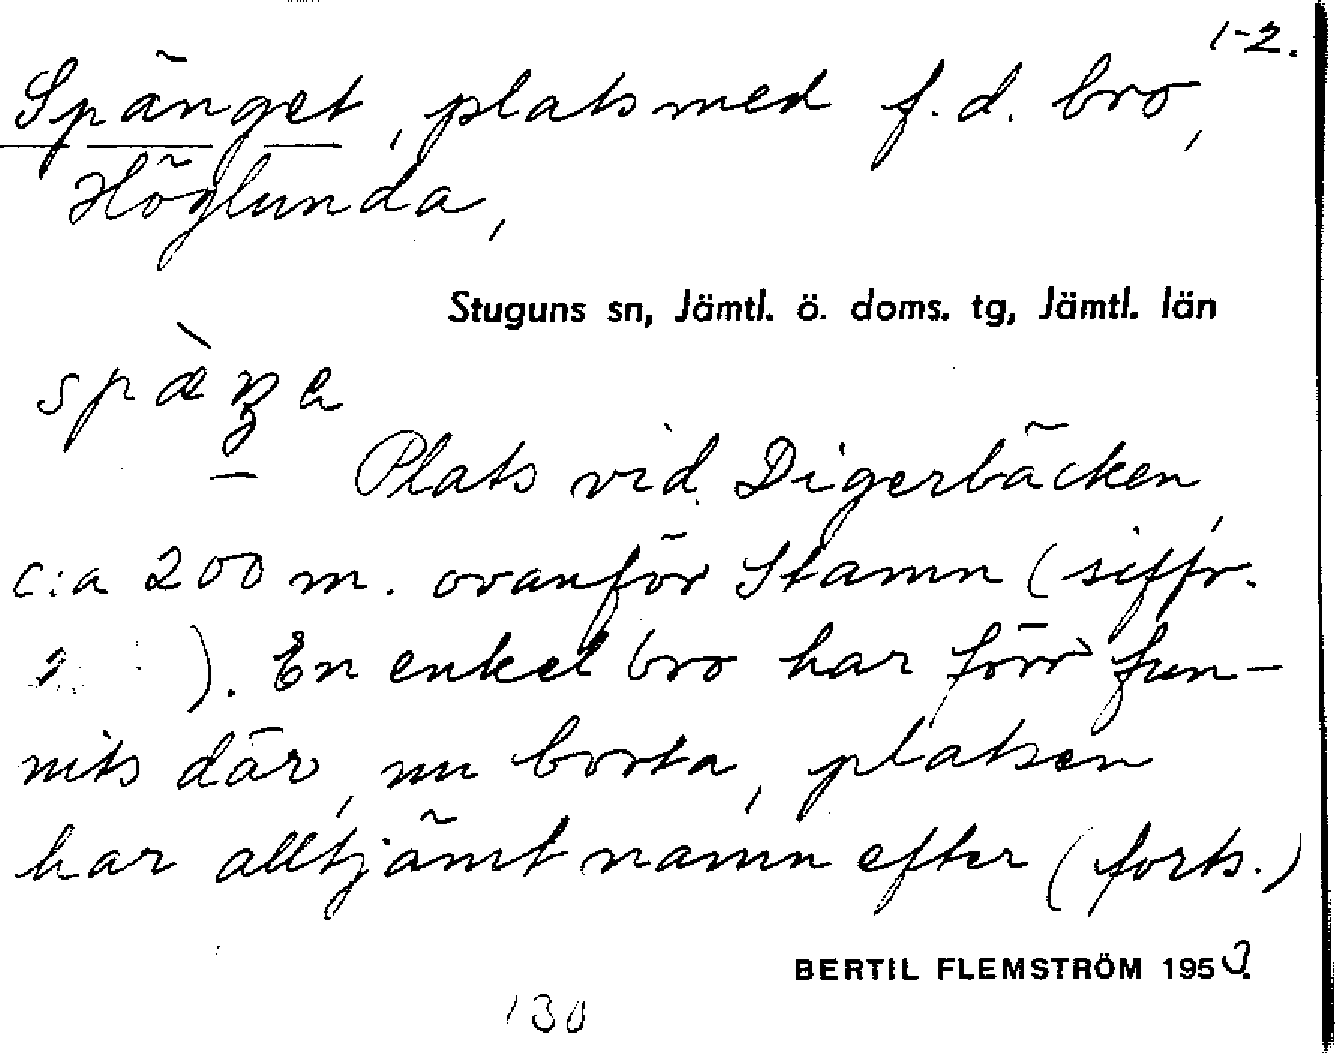 1-2.
Spänget, plats med f.d. bro,
Höglunda,
Stuguns sn, Jämtl. ö. doms. tg, Jämtl. län
Plats vid Digerbäcken,
c:a 200 m. ovanför Stamn (siffr.
). En enkel bro har förr fun-
nits där, nu borta, platsen
har alltjämt namn efter (forts.)
BERTIL FLEMSTRÖM 195
130